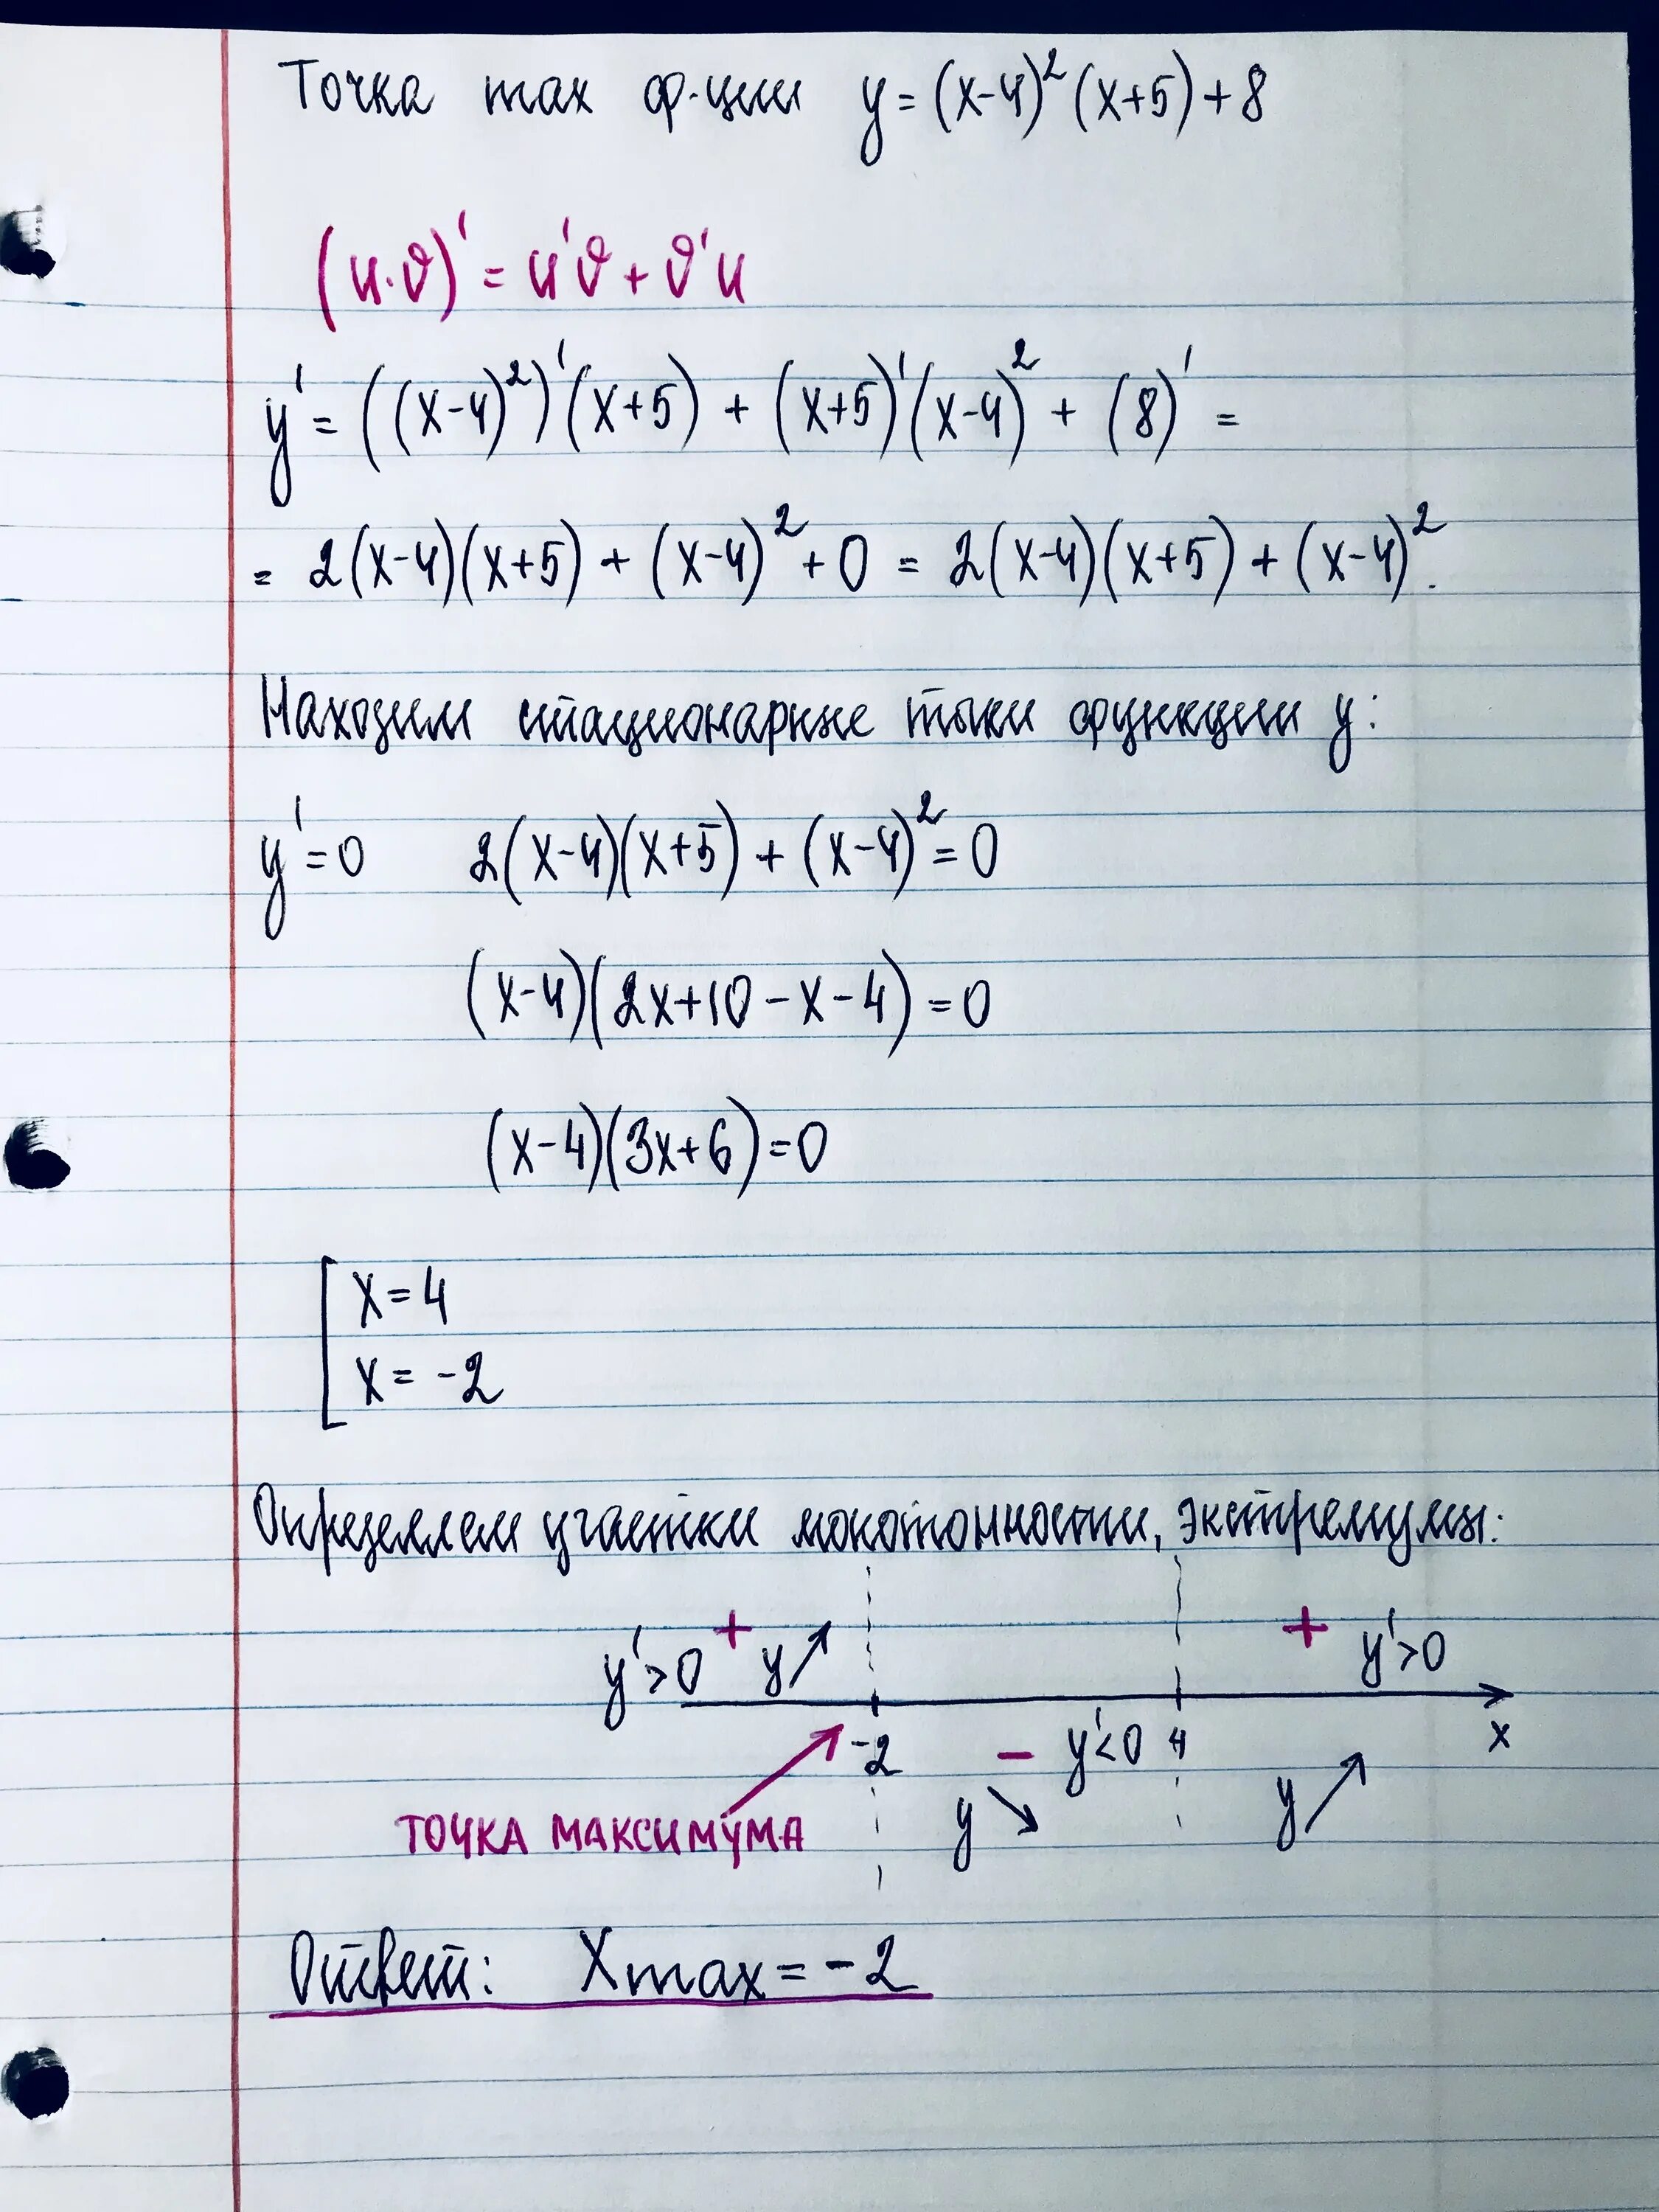 Точка max ф-ции y = (x-4)² (x+5) + 8
(u·v)' = u'v + v'u
y' = ((x-4)²)' (x+5) + (x+5)' (x-4)² + (8)' =
= 2(x-4)(x+5) + (x-4)² + 0 = 2(x-4)(x+5) + (x-4)².
Находим стационарные точки функции y:
y' = 0 2(x-4)(x+5) + (x-4)² = 0
(x-4)(2x+10-x-4) = 0
(x-4)(3x+6) = 0
[ x = 4
x = -2
Определяем участки монотонности, экстремумы:
y' > 0 + y ↗ + y' > 0
-2 − y' < 0 4 x
ТОЧКА МАКСИМУМА y ↘ y ↗
Ответ: Xmax = -2